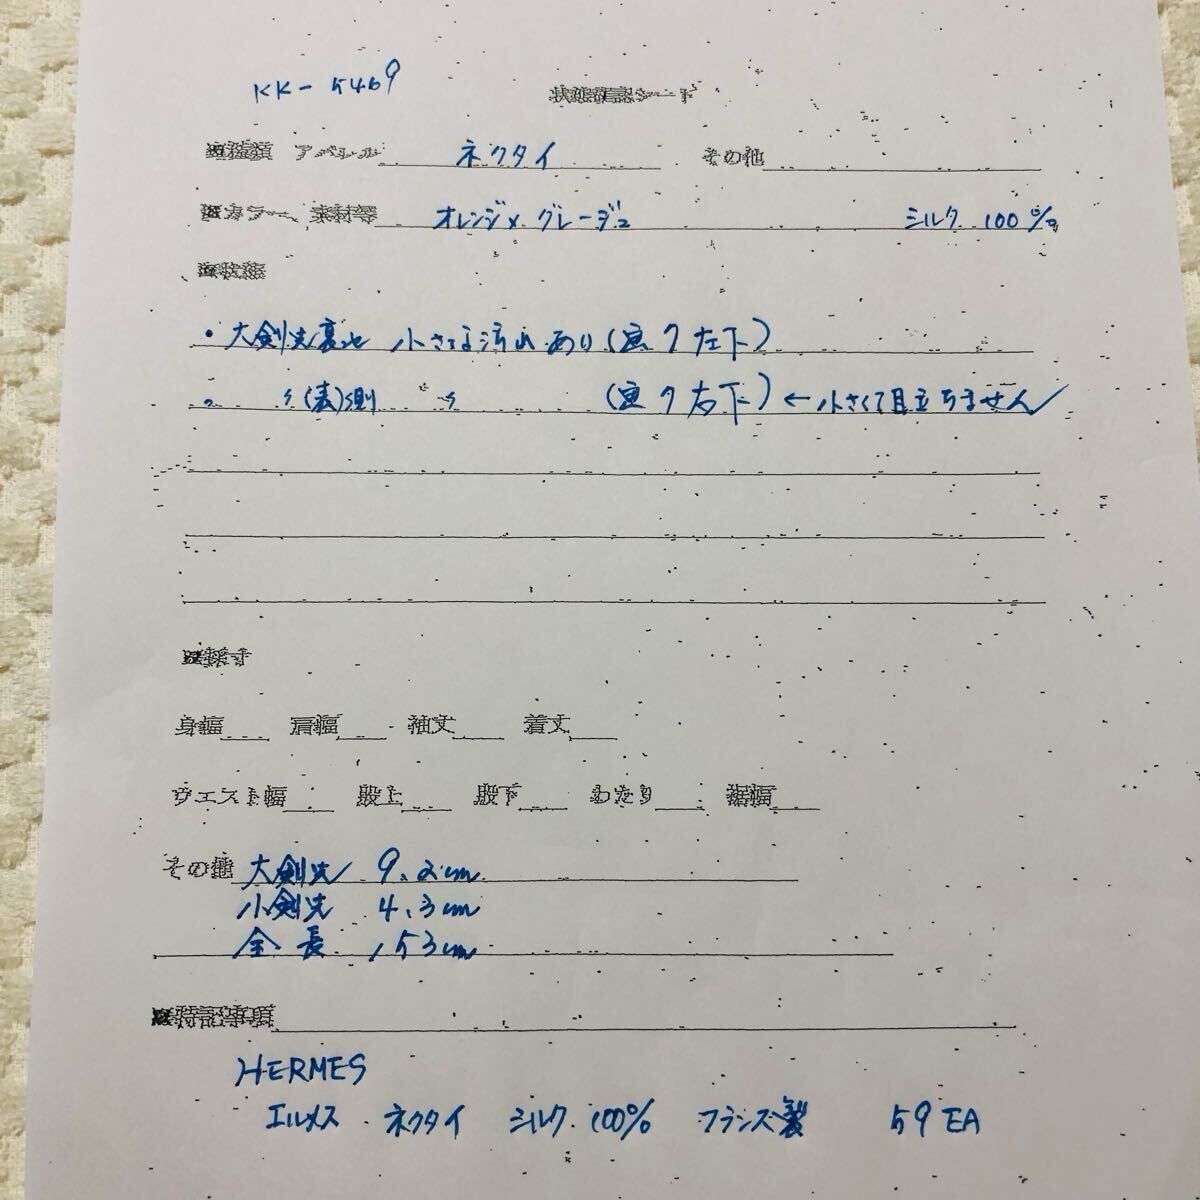 KK-5469
状態確認シート
■種類 アパレル ネクタイ その他
■カラー、素材等 オレンジ×グレージュ シルク 100%
■状態
・大剣先裏地 小さな汚れあり(画ク左下)
〃(表)側 〃 (画ク右下)←小さくて目立ちません
■採寸
身幅 肩幅 袖丈 着丈
ウエスト幅 股上 股下 わたり 裾幅
その他 大剣先 9.2cm
小剣先 4.3cm
全長 153cm
■特記事項
HERMES
エルメス ネクタイ シルク 100% フランス製 59EA